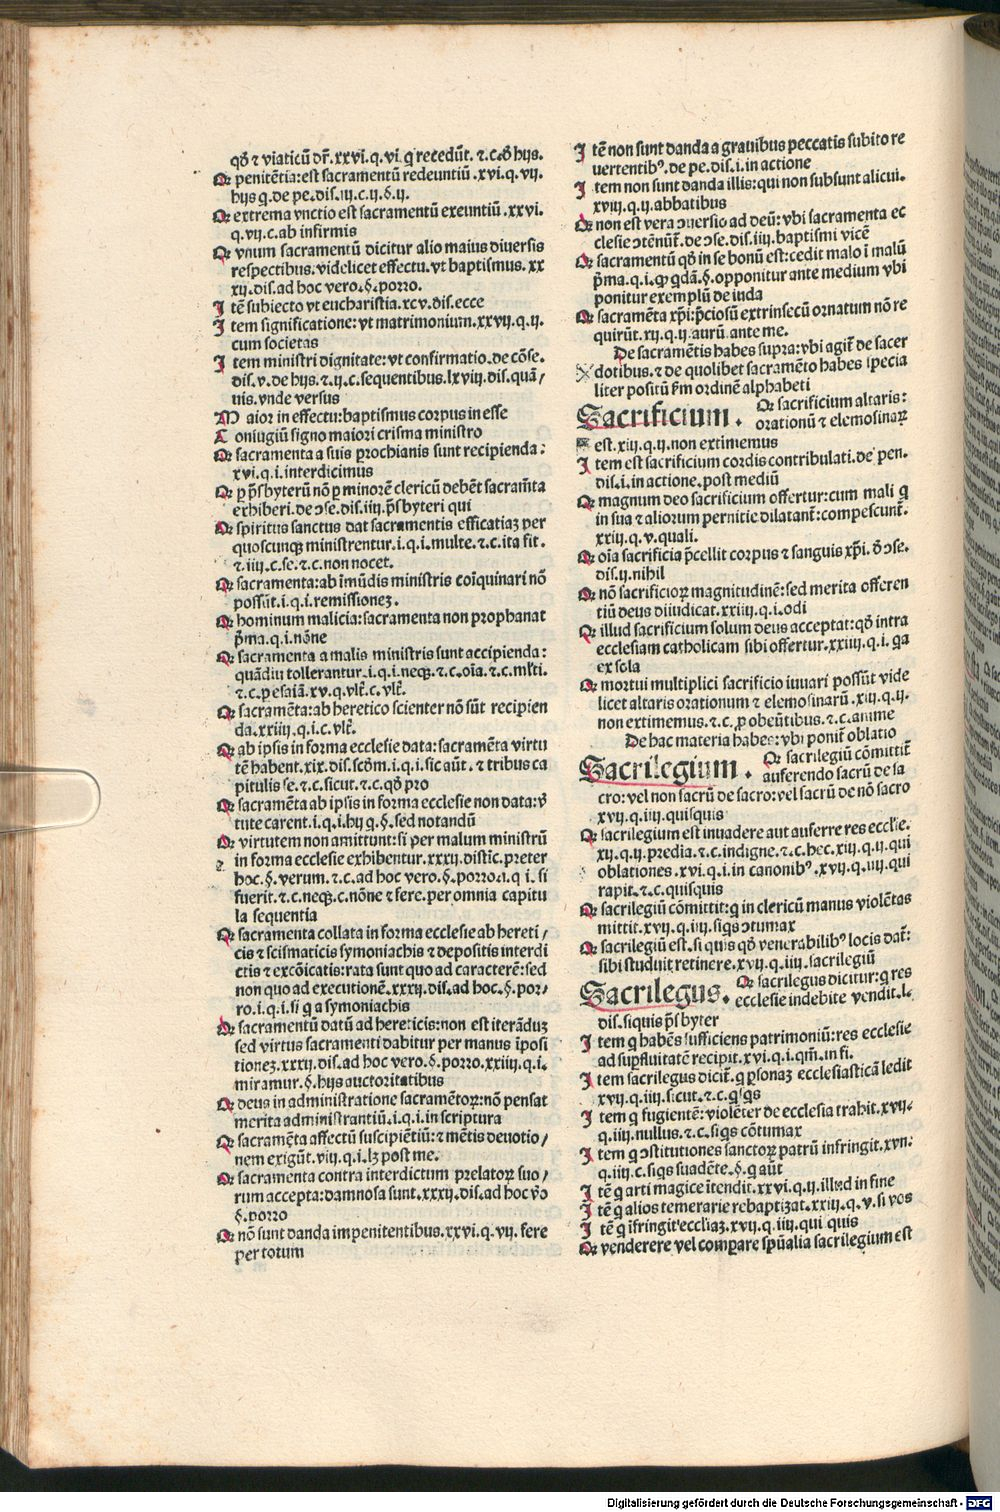 qđ ⁊ viaticū dr̄.xxvi.q.vi q̄ recedūt. ⁊.c.đ hijs.
Q penitētia:est sacramentū redeuntiū.xvi.q.vij.
hijs q̄.de pe.dis.iij.c.ij.§.ij.
Q extrema vnctio est sacramentū exeuntiū.xxvi.
q.vij.c.ab infirmis
Q vnum sacramentū dicitur alio maius diuersis
respectibus.videlicet effectu.vt baptismus.xx
xij.dis.ad hoc vero.§.porro.
I tē subiecto vt eucharistia.xcv.dis.ecce
I tem significatione:vt matrimonium.xxvij.q.ij.
cum societas
I tem ministri dignitate:vt confirmatio.de cōse.
dis.v.de hijs.⁊.ij.c.sequentibus.lxviij.dis.quā/
uis.vnde versus
M aior in effectu:baptismus corpus in esse
C oniugiū signo maiori crisma ministro
Q sacramenta a suis prochianis sunt recipienda:
xvi.q.i.interdicimus
Q p p̄sbyterū nō p minorē clericū debēt sacram̄ta
exhiberi.de ↄse.dis.iiij.p̄sbyteri qui
Q spiritus sanctus dat sacramentis efficatiaꝫ per
quoscunqꝫ ministrentur.i.q.i.multe.⁊.c.ita fit.
⁊.iiij.c.se.⁊.c.non nocet.
Q sacramenta:ab īmūdis ministris coīquinari nō
possūt.i.q.i.remissioneꝫ.
Q hominum malicia:sacramenta non prophanat
p̄ma.q.i.nōne
Q sacramenta a malis ministris sunt accipienda:
quādiu tollerantur.i.q.i.neqꝫ.⁊.c.oīa.⁊.c.ml̄ti.
⁊.c.p esaiā.xv.q.vlt̄.c.vlt̄.
Q sacramēta:ab heretico scienter nō sūt recipien
da.xxiiij.q.i.c.vlt̄.
Q ab ipsis in forma ecclesie data:sacramēta virtu
tē habent.xix.dis.scḋm.i.q.i.sic aūt.⁊ tribus ca
pitulis se.⁊.c.sicut.⁊.c.qđ pro
Q sacramēta ab ipsis in forma ecclesie non data:v̄
tute carent.i.q.i.hij q̄.§.sed notandū
Q virtutem non amittunt:si per malum ministrū
in forma ecclesie exhibentur.xxxij.distic.preter
hoc.§.verum.⁊.c.ad hoc vero.§.porro.i.q i.si
fuerit.⁊.c.neqꝫ.c.nōne ⁊ fere.per omnia capitu
la sequentia
Q sacramenta collata in forma ecclesie ab hereti/
cis ⁊ scismaticis symoniachis ⁊ depositis interdi
ctis ⁊ excōicatis:rata sunt quo ad caracterē:sed
non quo ad executionē.xxxij.dis.ad hoc.§.por/
ro.i.q.i.si q̄ a symoniachis
Q sacramentū datū ad hereticis:non est iterāduꝫ
sed virtus sacramenti dabitur per manus īposi
tioneꝫ.xxxij.dis.ad hoc vero.§.porro.xxiiij.q.i.
miramur.§.hijs auctoritatibus
Q deus in administratione sacramētoꝝ:nō pensat
merita administrantiū.i.q.i.in scriptura
Q sacramēta affectū suscipiētiū:⁊ mētis deuotio/
nem exigūt.viij.q.i.lꝫ post me.
Q sacramenta contra interdictum prelatoꝝ suo/
rum accepta:damnosa sunt.xxxij.dis.ad hoc v̄o
§.porro
Q nō sunt danda impenitentibus.xxvi.q.vij.fere
per totum
I tē non sunt danda a grauibus peccatis subito re
uertentibꝰ.de pe.dis.i.in actione
I tem non sunt danda illis:qui non subsunt alicui.
xviij.q.ij.abbatibus
Q non est vera ↄuersio ad deū:vbi sacramenta ec
clesie ↄtēnūt̄.de ↄse.dis.iiij.baptismi vicē
Q sacramentū qđ in se bonū est:cedit malo ī malū
p̄ma.q.i.q̄ q̄dā.§.opponitur ante medium vbi
ponitur exemplū de iuda
Q sacramēta xp̄i:p̄ciosū extrinsecū ornatum nō re
quirūt.xij.q.ij.aurū.ante me.
De sacramētis habes supra:vbi agit̄ de sacer
dotibus.⁊ de quolibet sacramēto habes specia
liter positū ẜm ordinē alphabeti
Sacrificium. Q sacrificium altaris:
orationū ⁊ elemosinaꝝ
est.xiij.q.ij.non extimemus
I tem est sacrificium cordis contribulati.de pen.
dis.i.in actione.post mediū
Q magnum deo sacrificium offertur:cum mali q̄
in sua ⁊ aliorum pernitie dilatant̄:compescunt̄.
xxiij.q.v.quali.
Q oīa sacrificia p̄cellit corpus ⁊ sanguis xp̄i.đ ↄse.
dis.ij.nihil
Q nō sacrificioꝝ magnitudinē:sed merita offeren
tiū deus diiudicat.xxiiij.q.i.odi
Q illud sacrificium solum deus acceptat:qđ intra
ecclesiam catholicam sibi offertur.xxiiij.q.i.q̄a
ex sola
Q mortui multiplici sacrificio iuuari possūt vide
licet altaris orationum ⁊ elemosinarū.xiij.q.ij.
non extimemus.⁊.c.p̱ obeūtibus.⁊.c.anime
De hac materia habes:vbi ponit̄ oblatio
Sacrilegium. Q sacrilegiū cōmittit̄
auferendo sacrū de sa
cro:vel non sacrū de sacro:vel sacrū de nō sacro
xvij.q.iiij.quisquis
Q sacrilegium est inuadere aut auferre res eccl̄ie.
xij.q.ij.predia.⁊.c.indigne.⁊.c.hec.xij.q.ij.qui
oblationes.xvi.q.i.in canonibꝰ.xvij.q.iiij.qui
rapit.⁊.c.quisquis
Q sacrilegiū cōmittit:q̄ in clericū manus violētas
mittit.xvij.q.iiij.siq̄s ↄtumax
Q sacrilegiū est.si quis qđ venerabilibꝰ locis dat̄:
sibi studuit retinere.xvij.q.iiij.sacrilegiū
Sacrilegus. Q sacrilegus dicitur:q̄ res
ecclesie indebite vendit.l.
dis.siquis p̄sbyter
I tem q̄ habēs sufficiens patrimoniū:res ecclesie
ad supfluitatē recipit.xvi.q.i.qm̄.in fi.
I tem sacrilegus dicit̄.q̄ psonaꝫ ecclesiasticā ledit
xvij.q.iiij.sicut.⁊.c.q̄sq̄s
I tem q̄ fugientē:violēter de ecclesia trahit.xvij.
q.iiij.nullus.⁊.c.siq̄s cōtumax
I tem q̄ ↄstitutiones sanctoꝝ patrū infringit.xvij.
q.iiij.c.siq̄s suadēte.§.q̄ aūt
I tē q̄ arti magice ītendit.xxvi.q.ij.illud in fine
I tē q̄ alios temerarie rebaptizat.xxiij.q.v.si vos
I tē q̄ īfringit ecclīaꝫ.xvij.q.iiij.qui quis
Q venderere vel compare sp̄ualia sacrilegium est
Digitalisierung gefördert durch die Deutsche Forschungsgemeinschaft - DFG